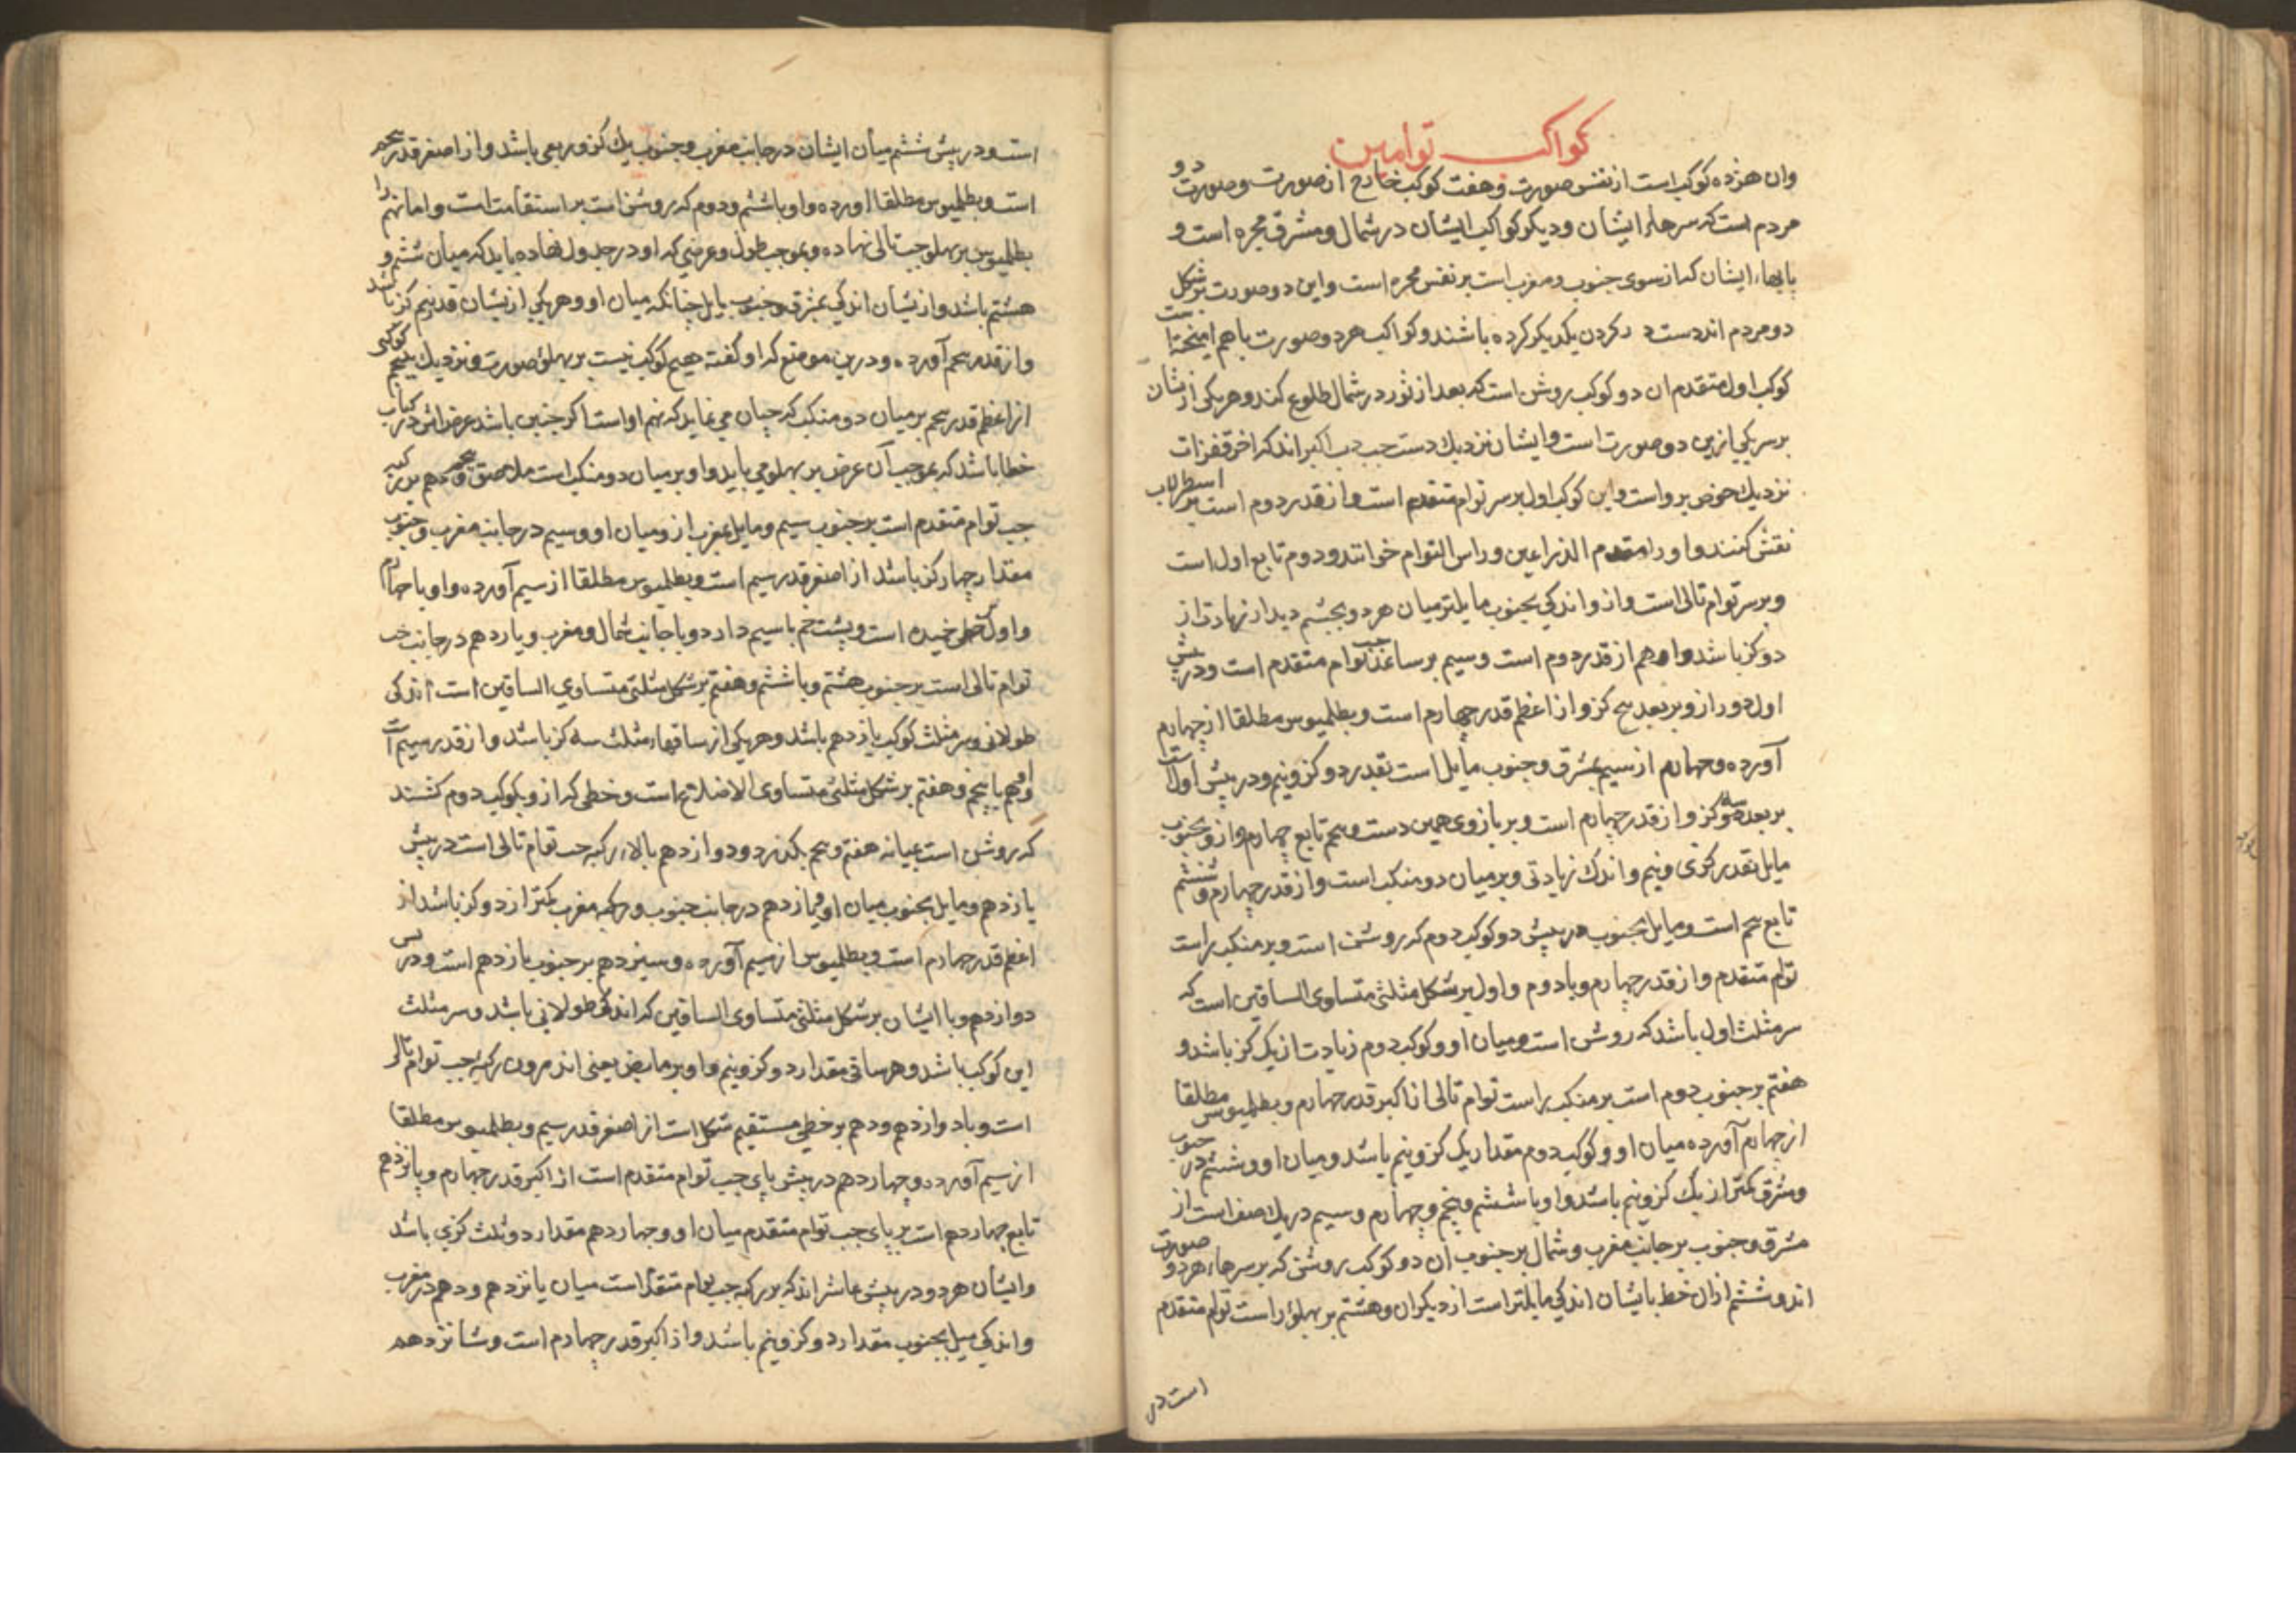 کواکب توامین
وان هژده کوکب است از نفس صورت و هفت کوکب خارج از صورت و صورت دو
مردم است که سرهاء ایشان و دیکر کواکب ایشان در شمال و مشرق مجره است و
پایهاء ایشان که از سوی جنوب و مغرب است بر نفس مجره است و این دو صورت بر شکل
دو مردم اند دست در کردن یکدیکر کرده باشند و کواکب هر دو صورت باهم امیخته است
کوکب اول متقدم ان دو کوکب روشن است که بعد از ثور در شمال طلوع کند و هر یکی ازیشان
بر سر یکی ازین دو صورت است و ایشان نزدیک دست چپ دب اکبر اند که اخر قفزات
نزدیک حوض برو است و این کوکب اول بر سر توام متقدم است و از قدر دوم است بر اسطرلاب
نقش کنند و او را مقدم الذراعین و راس التوام خوانند و دوم تابع اول است
و بر سر توام تالی است و ازو اندکی بجنوب مایلتر میان هر دو بچشم دیدار زیادت از
دو کز باشد و او هم از قدر دوم است و سیم بر ساعد چپ توام متقدم است و در پیش
اول دور ازو بر بعد پنج کز و از اعظم قدر چهارم است و بطلمیوس مطلقا از چهارم
آورده و چهارم از سیم بمشرق و جنوب مایل است بقدر دو کز و نیم و در پیش اول است
بر بعد سه کز و از قدر چهارم است و بر بازوی همین دست و پنجم تابع چهارم و ازو بجنوب
مایل بقدر کزی و نیم و اندک زیادتی و بر میان دو منکب است و از قدر چهارم و ششم
تابع پنجم است و مایل بجنوب در پیش دو کوکب دوم که روشن است و بر منکب راست
توام متقدم و از قدر چهارم و با دوم و اول بر شکل مثلثی متساوی الساقین است که
سر مثلث اول باشد که روشن است و میان او و کوکب دوم زیادت از یک کز باشد و
هفتم بر جنوب دوم است بر منکب راست توام تالی از اکبر قدر چهارم و بطلمیوس مطلقا
از چهارم آورده میان او و کوکب دوم مقدار یک کز و نیم باشد و میان او و ششم در جنوب
و مشرق کمتر از یک کز و نیم باشد و او با ششم و پنجم و چهارم و سیم در یک صف است از
مشرق و جنوب بر جانب مغرب و شمال بر جنوب ان دو کوکب روشن که بر سرهاء هر دو صورت
اند و ششم ازان خط بایشان اندکی مایلتر است از دیکران و هشتم بر پهلوء راست توام متقدم
است در
است و در پیش ششم میان ایشان در جانب مغرب و جنوب یک کز و ربعی باشد و از اصغر قدر پنجم
است و بطلمیوس مطلقا اورده و او با ششم و دوم که روشن است بر استقامت است و اما نهم را
بطلمیوس بر پهلو چپ تالی نهاده و بموجب طول و عرضی که او در جدول نهاده باید که میان ششم و
هشتم باشد و ازیشان اندکی بمشرق و جنوب مایل چنانکه میان او و هر یکی ازیشان قدر نیم کز باشد
و از قدر پنجم آورده و درین موضع که او کفته هیچ کوکب نیست بر پهلوء صورت و نزدیک پنجم کوکبی
از اعظم قدر پنجم بر میان دو منکب که چنان می نماید که نهم او است اکر چنین باشد عرض اش در کتاب
خطا باشد که بموجب آن عرض بر پهلو می باید و او بر میان دو منکب است ملاصق پنجم و دهم بر رکبه
چپ توام متقدم است بر جنوب سیم و مایل بمغرب ازو میان او و سیم در جانب مغرب و جنوب
مقدار چهار کز باشد از اصغر قدر سیم است و بطلمیوس مطلقا از سیم آورده و او با چهارم
و اول خطی خمیده است و پشت خم با سیم دارد و با جانب شمال و مغرب و یازدهم در جانب چپ
توام تالی است بر جنوب هشتم و با ششم و هفتم بر شکل مثلثی متساوی الساقین است اندکی
طولانی و سر مثلث کوکب یازدهم باشد و هر یکی از ساقهاء مثلث سه کز باشد و از قدر سیم است
و هم با پنجم و هفتم بر شکل مثلثی متساوی الاضلاع است و خطی که ازو بکوکب دوم کشند
که روشن است بمیانه هفتم و پنجم بکذرد و دوازدهم بالاء رکبه چپ توام تالی است در پیش
یازدهم و مایل بجنوب میان او و یازدهم در جانب جنوب و مغرب کمتر از دو کز باشد از
اعظم قدر چهارم است و بطلمیوس از سیم آورده و سیزدهم بر جنوب یازدهم است و در پس
دوازدهم و با ایشان بر شکل مثلثی متساوی الساقین که اندکی طولانی باشد و سر مثلث
این کوکب باشد و هر ساقی مقدار دو کز و نیم و او بر مابض یعنی اندرون رکبه چپ توام تالی
است و با دوازدهم و دهم بر خطی مستقیم شکل است از اصغر قدر سیم و بطلمیوس مطلقا
از سیم آورده و چهاردهم در پیش پای چپ توام متقدم است از اکبر قدر چهارم و پانزدهم
تابع چهاردهم است بر پای چپ توام متقدم میان او و چهاردهم مقدار دو ثلث کزی باشد
و ایشان هر دو در پیش عاشر اند که بر رکبه چپ توام متقدم است میان پانزدهم و دهم در مغرب
و اندکی میل بجنوب مقدار دو کز و نیم باشد و از اکبر قدر چهارم است و شانزدهم